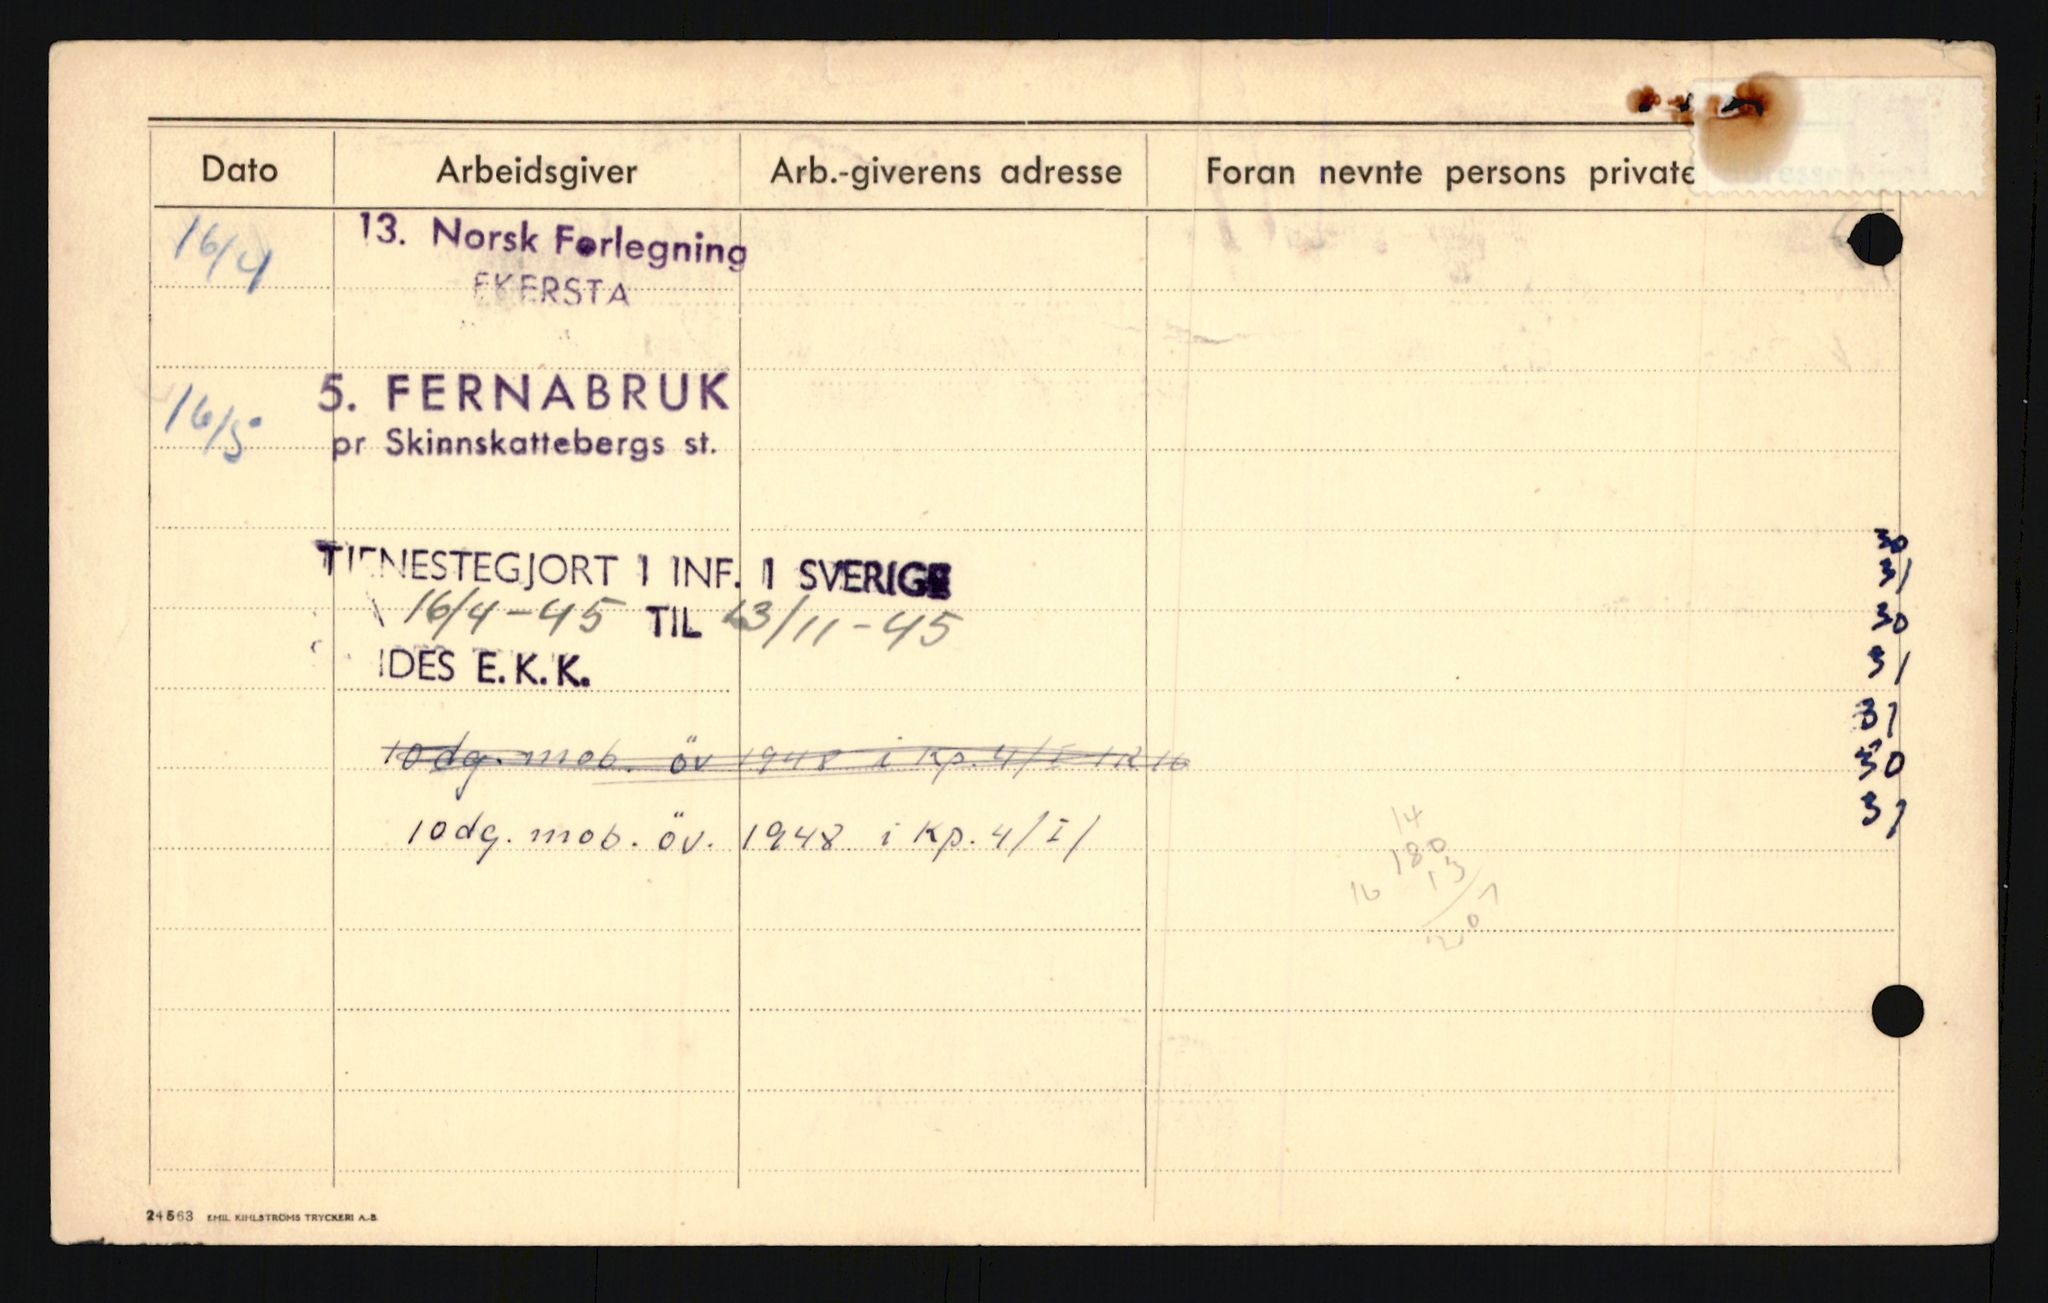 Dato Arbeidsgiver Arb.-giverens adresse Foran nevnte persons private adresse
16/4 13. Norsk Forlegning
EKERSTA
16/5 5. FERNABRUK
pr Skinnskattebergs st.
TJENESTEGJORT I INF. I SVERIGE
16/4-45 TIL 13/11-45
IDES E.K.K.
10 dg. mob. öv 1948 i Kp. 4/I IR 16
10 dg. mob. öv. 1948 i Kp. 4/I/
30
31
30
31
31
30
31
14
180
13
16
207
24563 EMIL KIHLSTRÖMS TRYCKERI A.-B.